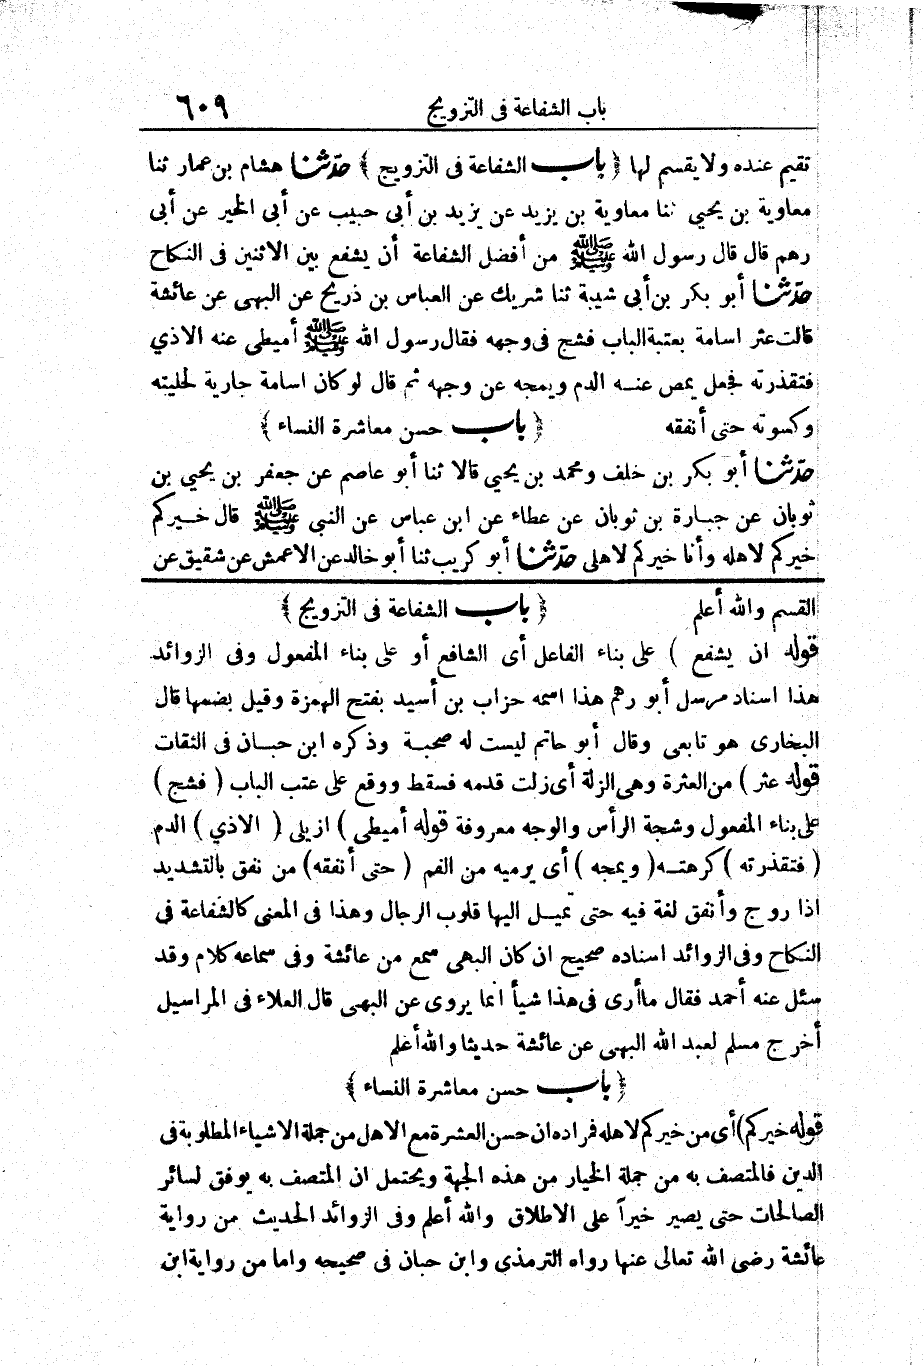 باب الشفاعة فى التزويج ٦٠٩
تقيم عنده ولا يقسم لها ﴿ باب الشفاعة فى التزويج ﴾ حدثنا هشام بن عمار ثنا
معاوية بن يحيى ثنا معاوية بن يزيد عن يزيد بن أبى حبيب عن أبى الخير عن أبى
رهم قال قال رسول الله ﷺ من أفضل الشفاعة أن يشفع بين الاثنين فى النكاح
حدثنا أبو بكر بن أبى شيبة ثنا شريك عن العباس بن ذريح عن البهى عن عائشة
قالت عثر اسامة بعتبة الباب فشج فى وجهه فقال رسول الله ﷺ أميطى عنه الاذي
فتقذرته فجعل يمص عنه الدم ويمجه عن وجهه ثم قال لو كان اسامة جارية لحليته
وكسوته حتى أنفقه ﴿ باب حسن معاشرة النساء ﴾
حدثنا أبو بكر بن خلف ومحمد بن يحيى قالا ثنا أبو عاصم عن جعفر بن يحيى بن
ثوبان عن جبارة بن ثوبان عن عطاء عن ابن عباس عن النبى ﷺ قال خيركم
خيركم لاهله وأنا خيركم لاهلى حدثنا أبو كريب ثنا أبو خالد عن الاعمش عن شقيق عن
القسم والله أعلم ﴿ باب الشفاعة فى التزويج ﴾
قوله ان يشفع ) على بناء الفاعل أى الشافع أو على بناء المفعول وفى الزوائد
هذا اسناد مرسل أبو رهم هذا اسمه حزاب بن أسيد بفتح الهمزة وقيل بضمها قال
البخارى هو تابعى وقال أبو حاتم ليست له صحبة وذكره ابن حبان فى الثقات
قوله عثر ) من العثرة وهى الزلة أى زلت قدمه فسقط ووقع على عتب الباب ( فشج )
على بناء المفعول وشجة الرأس والوجه معروفة قوله أميطى ) ازيلى ( الاذي ) الدم
( فتقذرته ) كرهته ( ويمجه ) أى يرميه من الفم ( حتى أنفقه ) من نفق بالتشديد
اذا روج وأنفق لغة فيه حتى تميل اليها قلوب الرجال وهذا فى المعنى كالشفاعة فى
النكاح وفى الزوائد اسناده صحيح ان كان البهى سمع من عائشة وفى سماعه كلام وقد
سئل عنه أحمد فقال ماأرى فى هذا شيأ انما يروى عن البهى قال العلاء فى المراسيل
أخرج مسلم لعبد الله البهى عن عائشة حديثا والله أعلم
﴿ باب حسن معاشرة النساء ﴾
قوله خيركم ) أى من خيركم لاهله فمراده ان حسن العشرة مع الاهل من جملة الاشياء المطلوبة فى
الدين فالمتصف به من جملة الخيار من هذه الجهة ويحتمل ان المتصف به يوفق لسائر
الصالحات حتى يصير خيراً على الاطلاق والله أعلم وفى الزوائد الحديث من رواية
عائشة رضى الله تعالى عنها رواه الترمذى وابن حبان فى صحيحه واما من رواية ابن